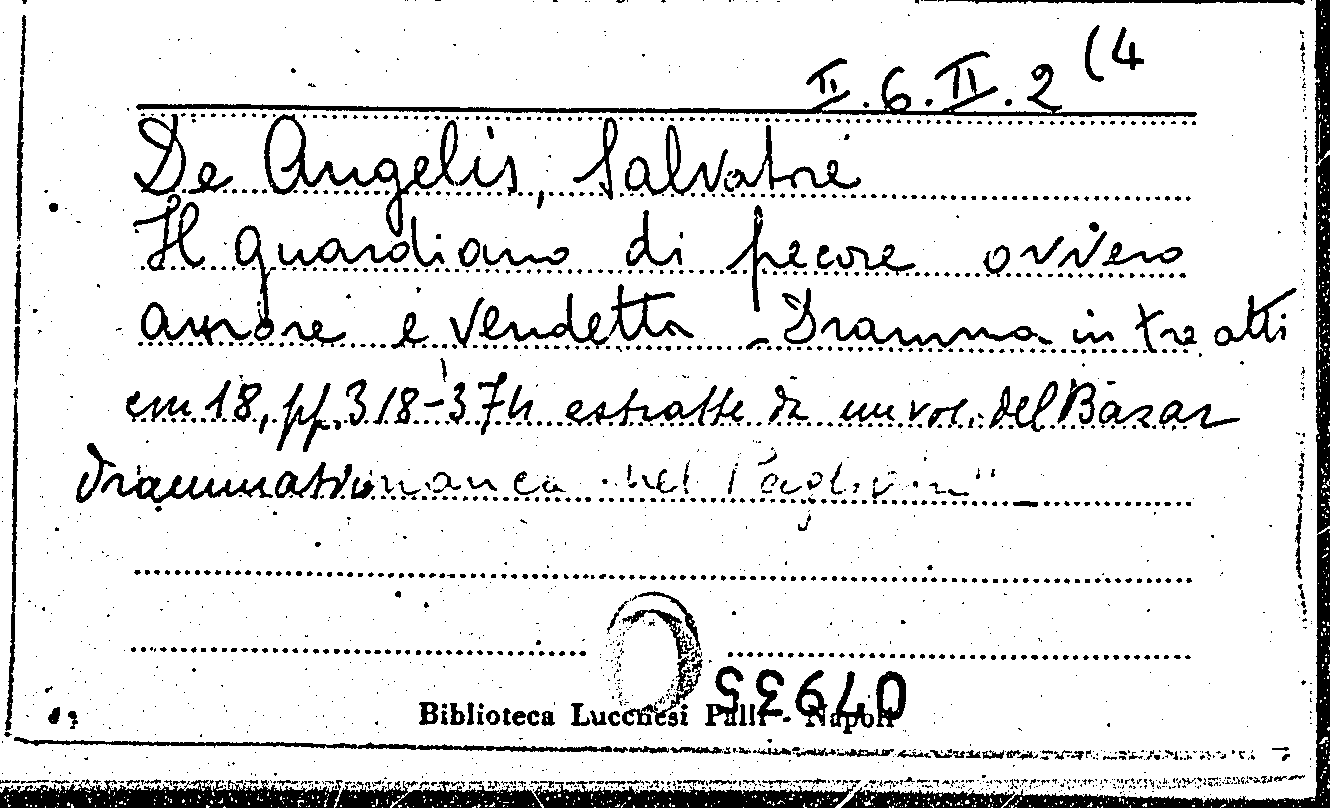 II.6.II.2 (4
De Angelis, Salvatore
Il guardiano di pecore ovvero
amore e vendetta - Dramma in tre atti
cm 18, pp. 318-374 estratte da un vol. del Bazar
drammatico manca nel Pagliaini" -
Biblioteca Lucchesi Palli - Napoli